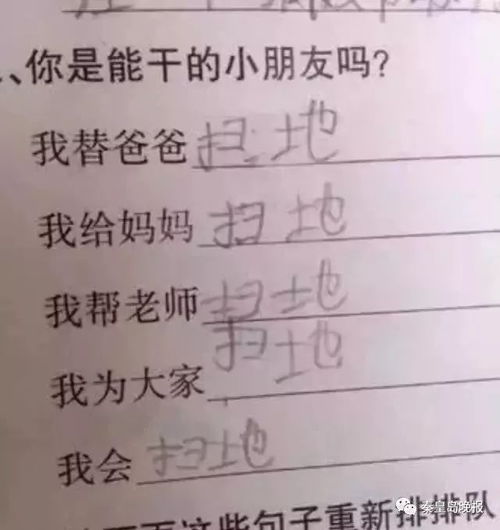 、你是能干的小朋友吗?
我替爸爸扫地
我给妈妈扫地
我帮老师扫地
我为大家扫地
我会扫地
这些句子重新排排队
秦皇岛晚报